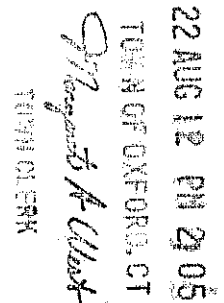 22 AUG 12 PM 2:05
TOWN OF OXFORD, CT
Margaret A West
TOWN CLERK